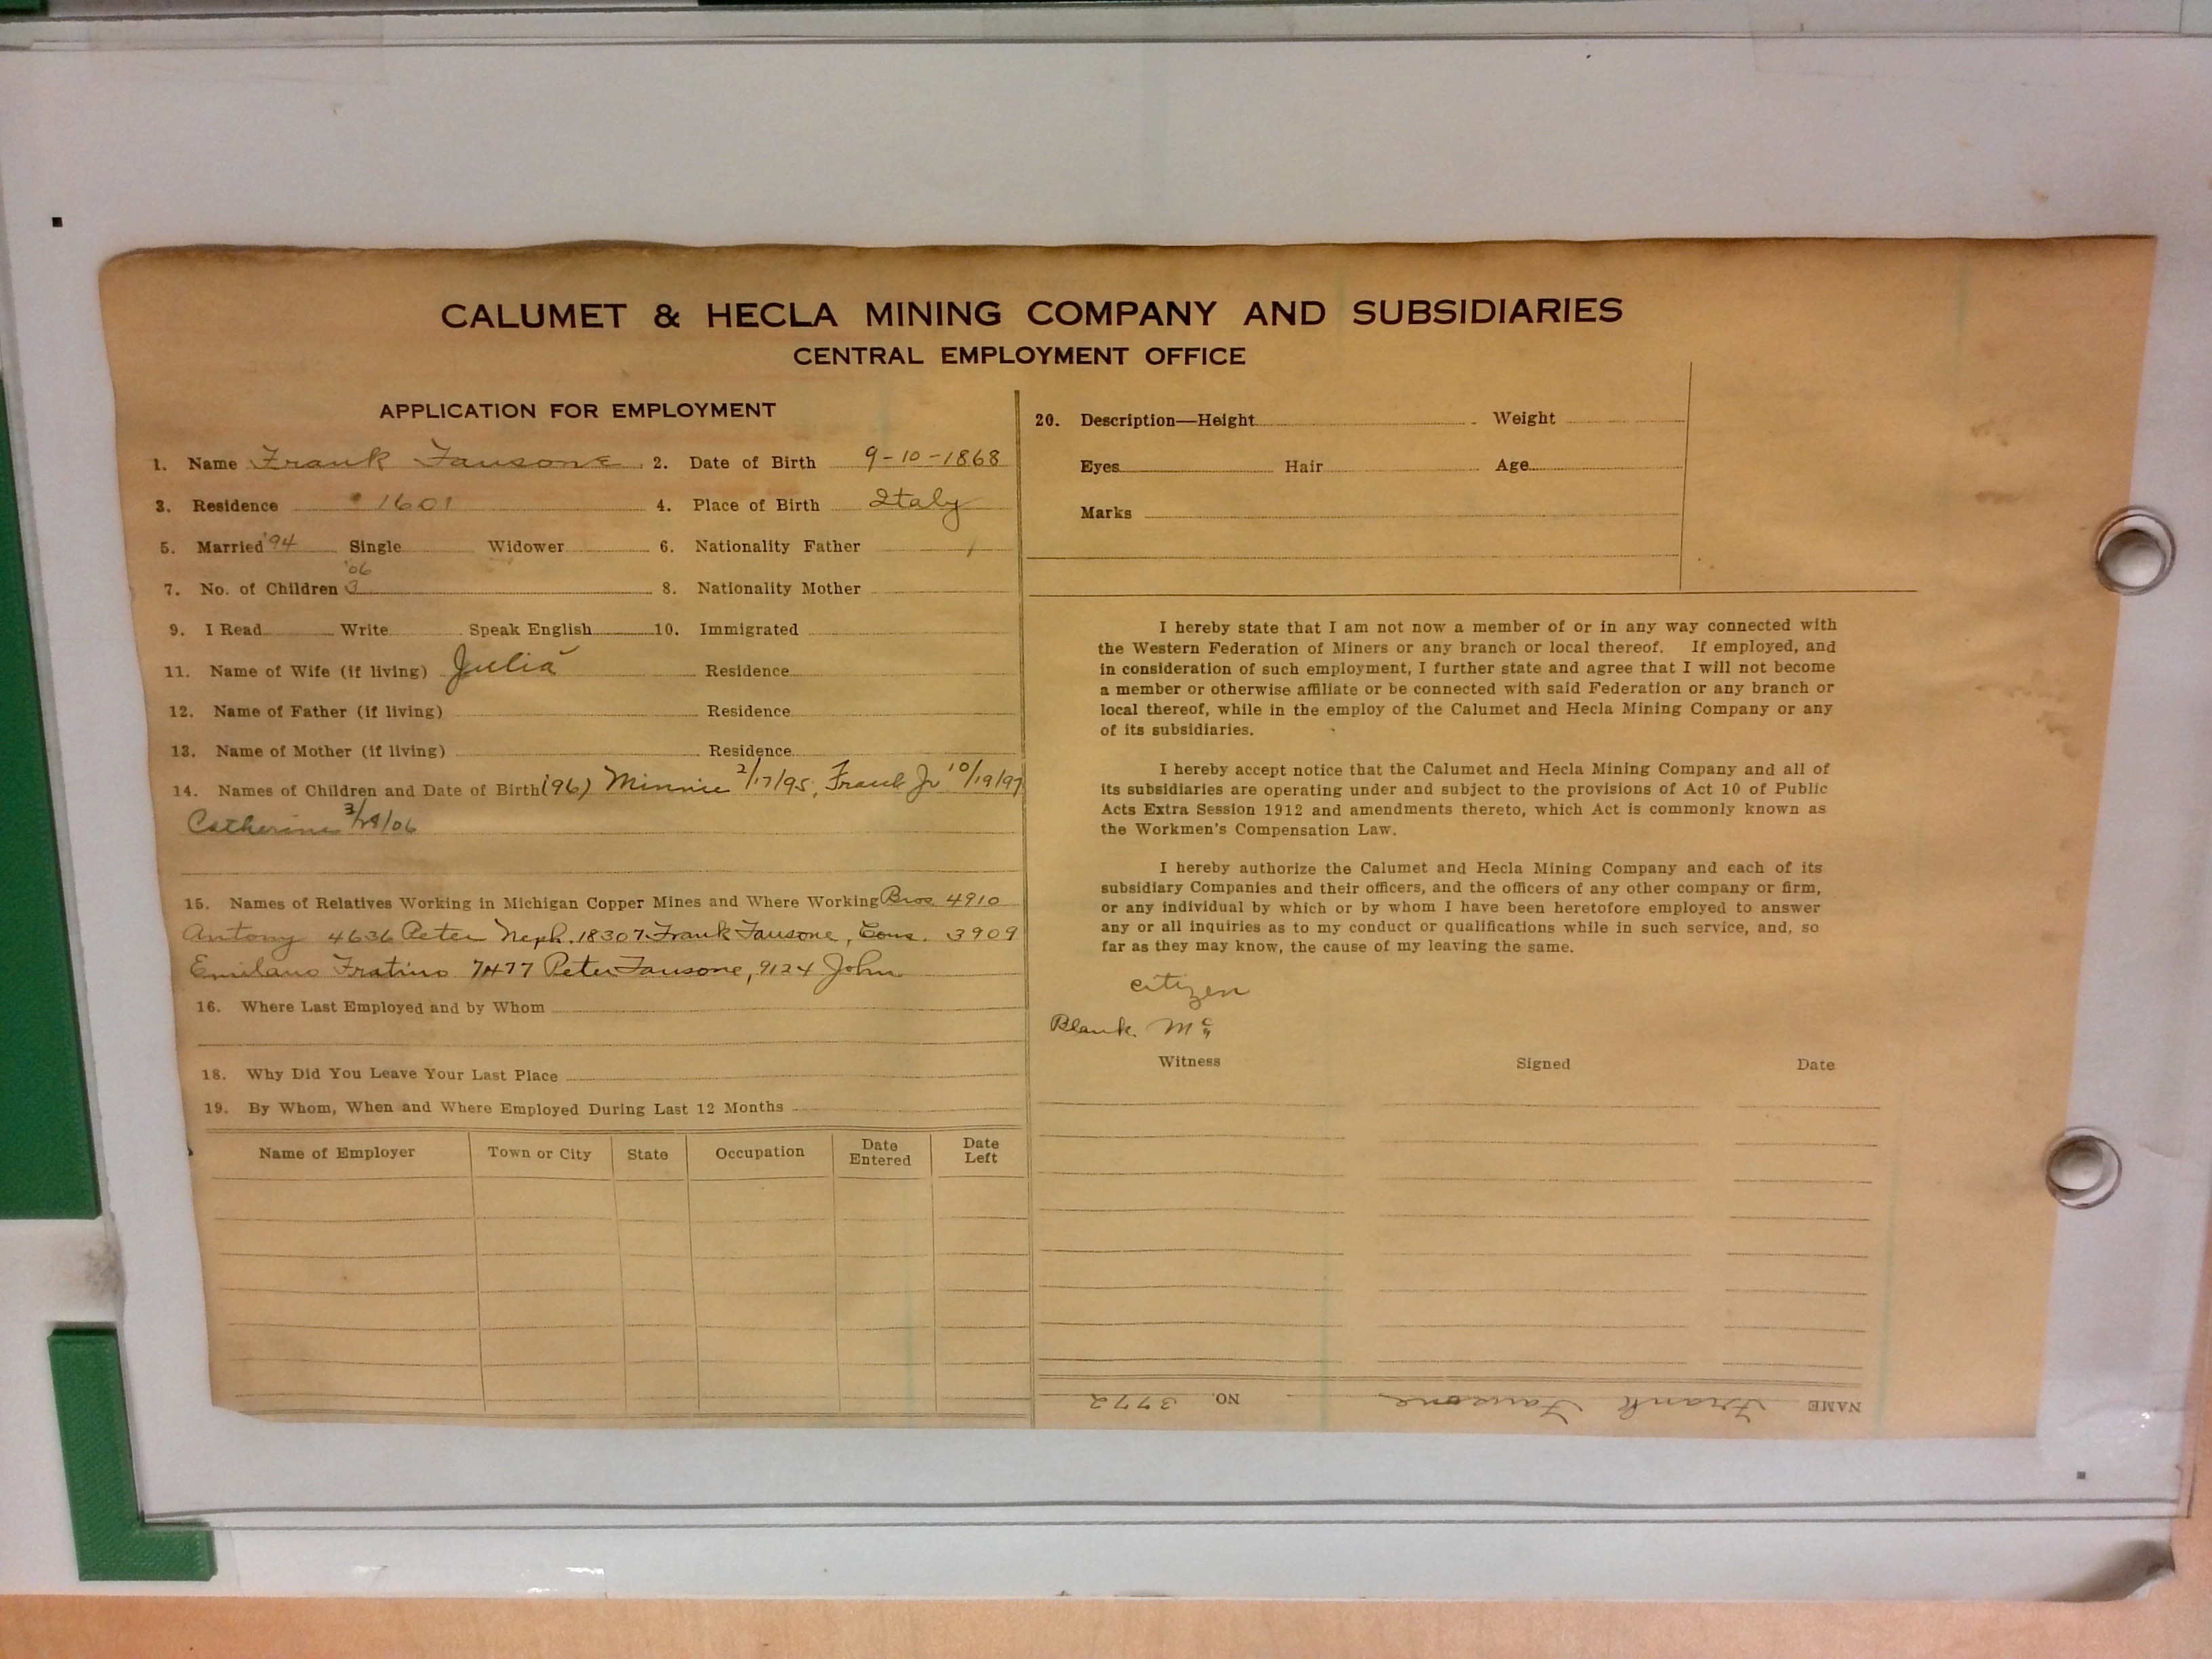 CALUMET & HECLA MINING COMPANY AND SUBSIDIARIES
CENTRAL EMPLOYMENT OFFICE
APPLICATION FOR EMPLOYMENT
1. Name Frank Fausone 2. Date of Birth 9-10-1868
3. Residence 1601 4. Place of Birth Italy
5. Married '94 Single Widower 6. Nationality Father
'06
7. No. of Children 3 8. Nationality Mother
9. I Read Write Speak English 10. Immigrated
11. Name of Wife (if living) Julia Residence
12. Name of Father (if living) Residence
13. Name of Mother (if living) Residence
14. Names of Children and Date of Birth (96) Minnie 2/17/95, Frank Jr 10/19/97
Catherine 3/28/06
15. Names of Relatives Working in Michigan Copper Mines and Where Working Bros 4910
Antony 4636 Peter Neph. 18307 Frank Fausone, Cous. 3909
Emilano Fratino 7477 Peter Fausone, 9124 John
16. Where Last Employed and by Whom
18. Why Did You Leave Your Last Place
19. By Whom, When and Where Employed During Last 12 Months
Name of Employer Town or City State Occupation Date Entered Date Left
20. Description—Height Weight
Eyes Hair Age
Marks
I hereby state that I am not now a member of or in any way connected with
the Western Federation of Miners or any branch or local thereof. If employed, and
in consideration of such employment, I further state and agree that I will not become
a member or otherwise affiliate or be connected with said Federation or any branch or
local thereof, while in the employ of the Calumet and Hecla Mining Company or any
of its subsidiaries.
I hereby accept notice that the Calumet and Hecla Mining Company and all of
its subsidiaries are operating under and subject to the provisions of Act 10 of Public
Acts Extra Session 1912 and amendments thereto, which Act is commonly known as
the Workmen's Compensation Law.
I hereby authorize the Calumet and Hecla Mining Company and each of its
subsidiary Companies and their officers, and the officers of any other company or firm,
or any individual by which or by whom I have been heretofore employed to answer
any or all inquiries as to my conduct or qualifications while in such service, and, so
far as they may know, the cause of my leaving the same.
citizen
Blank
Witness Signed Date
NAME Frank Fausone NO. 3772